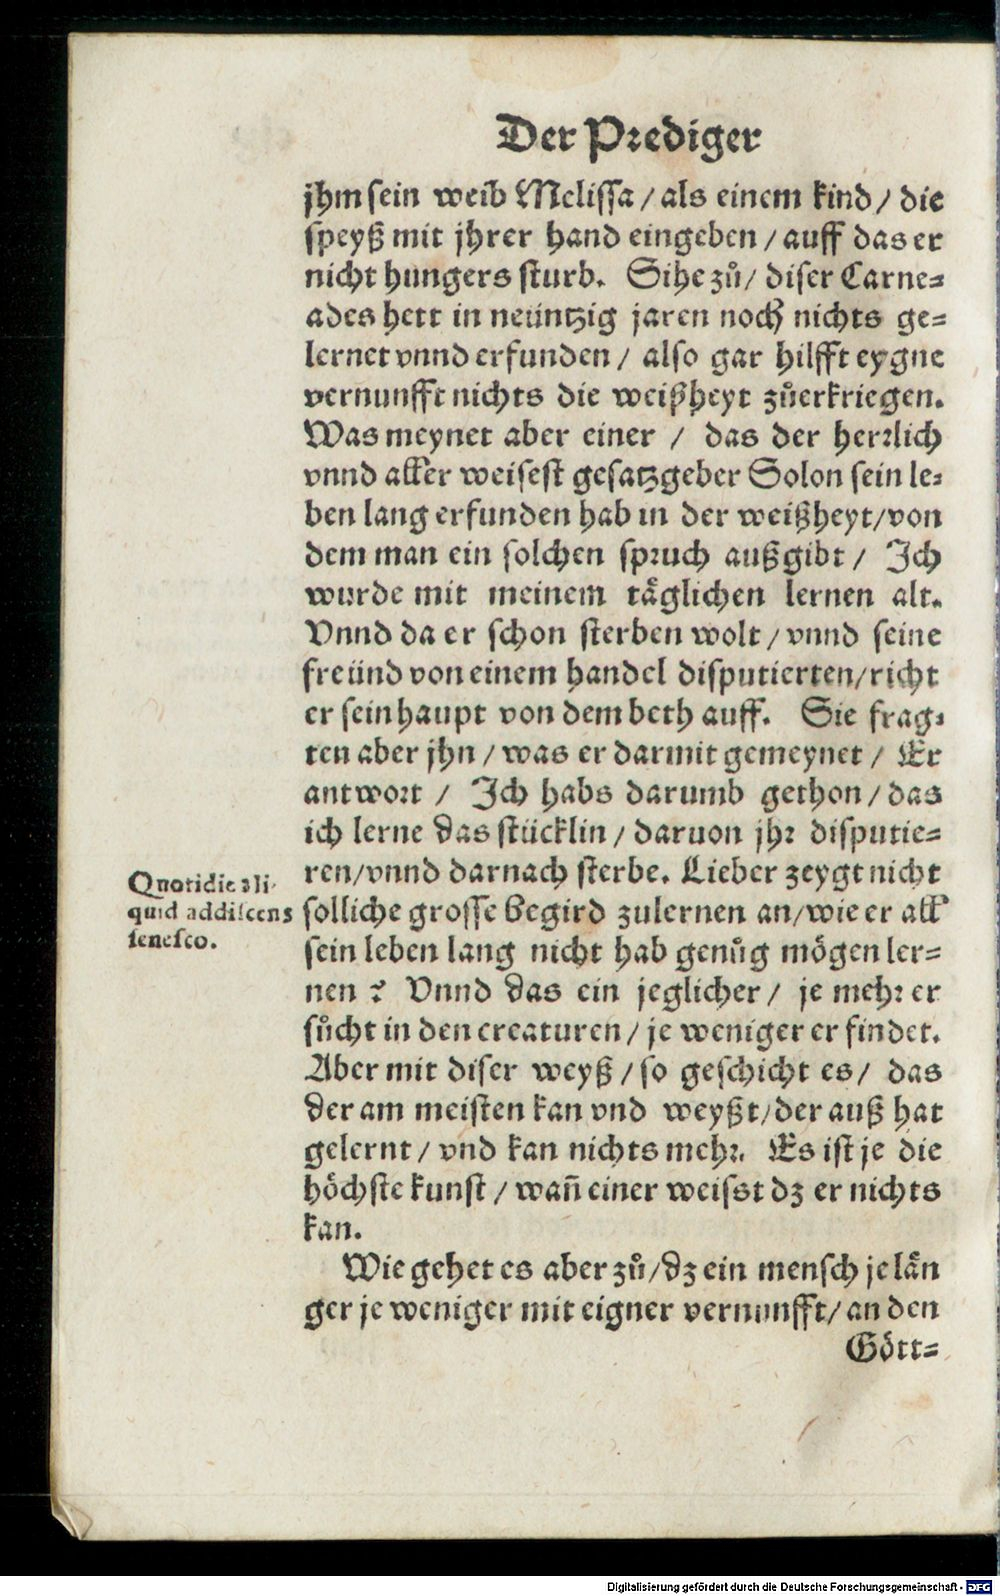 Der Prediger
jhm sein weib Melissa / als einem kind / die
speyß mit jhrer hand eingeben / auff das er
nicht hungers sturb. Sihe zů / diser Carne-
ades hett in neüntzig jaren noch nichts ge-
lernet vnnd erfunden / also gar hilfft eygne
vernunfft nichts die weißheyt zůerkriegen.
Was meynet aber einer / das der herrlich
vnnd aller weisest gesatzgeber Solon sein le-
ben lang erfunden hab in der weißheyt / von
dem man ein solchen spruch außgibt / Ich
wurde mit meinem täglichen lernen alt.
Vnnd da er schon sterben wolt / vnnd seine
freünd von einem handel disputierten / richt
er sein haupt von dem beth auff. Sie frag-
ten aber jhn / was er darmit gemeynet / Er
antwort / Ich habs darumb gethon / das
ich lerne das stücklin / daruon jhr disputie-
ren / vnnd darnach sterbe. Lieber zeygt nicht
Quotidie ali-
quid addiscens
senesco.
solliche grosse begird zulernen an / wie er all
sein leben lang nicht hab genůg mögen ler-
nen ? Vnnd das ein jeglicher / je mehr er
sůcht in den creaturen / je weniger er findet.
Aber mit diser weyß / so geschicht es / das
der am meisten kan vnd weyßt / der auß hat
gelernt / vnd kan nichts mehr. Es ist je die
höchste kunst / wañ einer weisst dz er nichts
kan.
Wie gehet es aber zů / dz ein mensch je län
ger je weniger mit eigner vernunfft / an den
Gött-
Digitalisierung gefördert durch die Deutsche Forschungsgemeinschaft - DFG